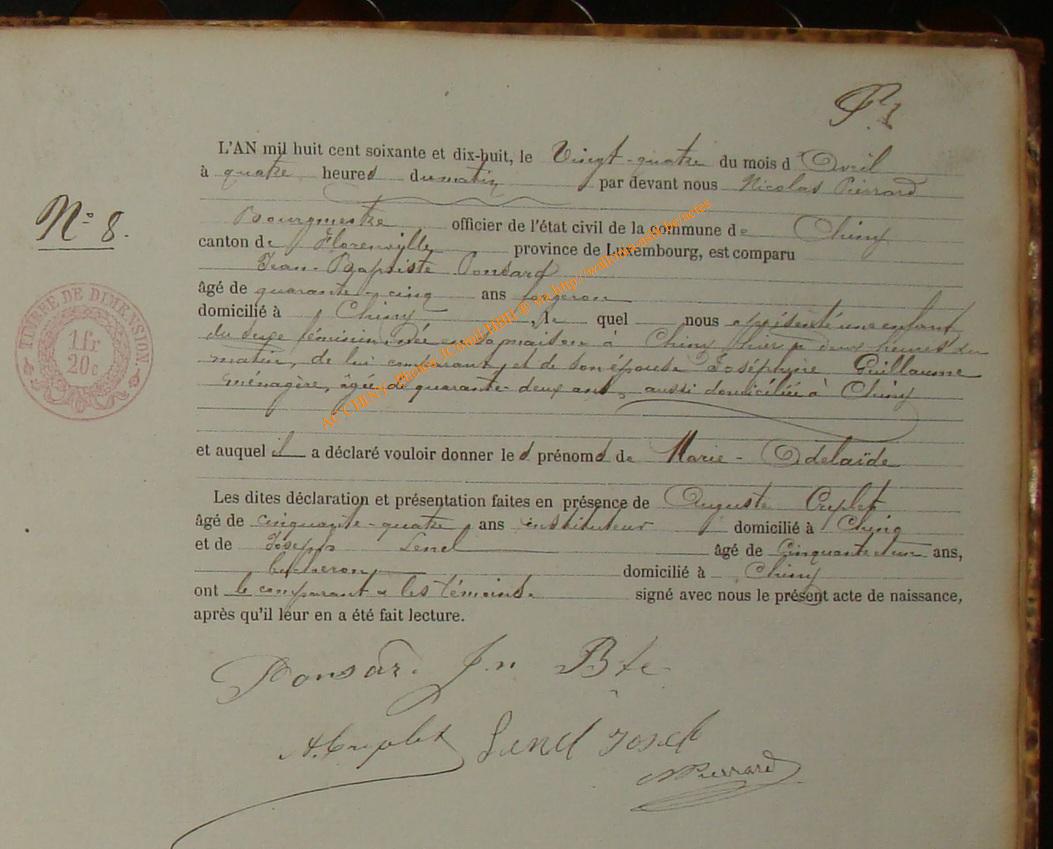 L'AN mil huit cent soixante et dix-huit, le Vingt-quatre du mois d'Avril
à quatre heures du matin par devant nous Nicolas Pierrard
Bourgmestre officier de l'état civil de la commune de Chiny
N° 8.
canton de Florenville province de Luxembourg, est comparu
Jean-Baptiste Ponsard
âgé de quarante-cinq ans forgeron
domicilié à Chiny, le quel nous a présenté un enfant
du sexe féminin née en sa maison à Chiny hier à deux heures du
matin, de lui comparant et de son épouse Joséphine Guillaume
ménagère, âgée de quarante-deux ans, aussi domiciliée à Chiny
et auquel il a déclaré vouloir donner les prénoms de Marie-Adelaïde
Les dites déclaration et présentation faites en présence de Auguste
âgé de cinquante-quatre ans instituteur domicilié à Chiny
et de Joseph Lenel âgé de Cinquante et un ans,
bucheron domicilié à Chiny
ont le comparant & les témoins signé avec nous le présent acte de naissance,
après qu'il leur en a été fait lecture.
Ponsard Jn Bte
Lenel Josef
NPierrard
TIMBRE DE DIMENSION
1 fr
20 c